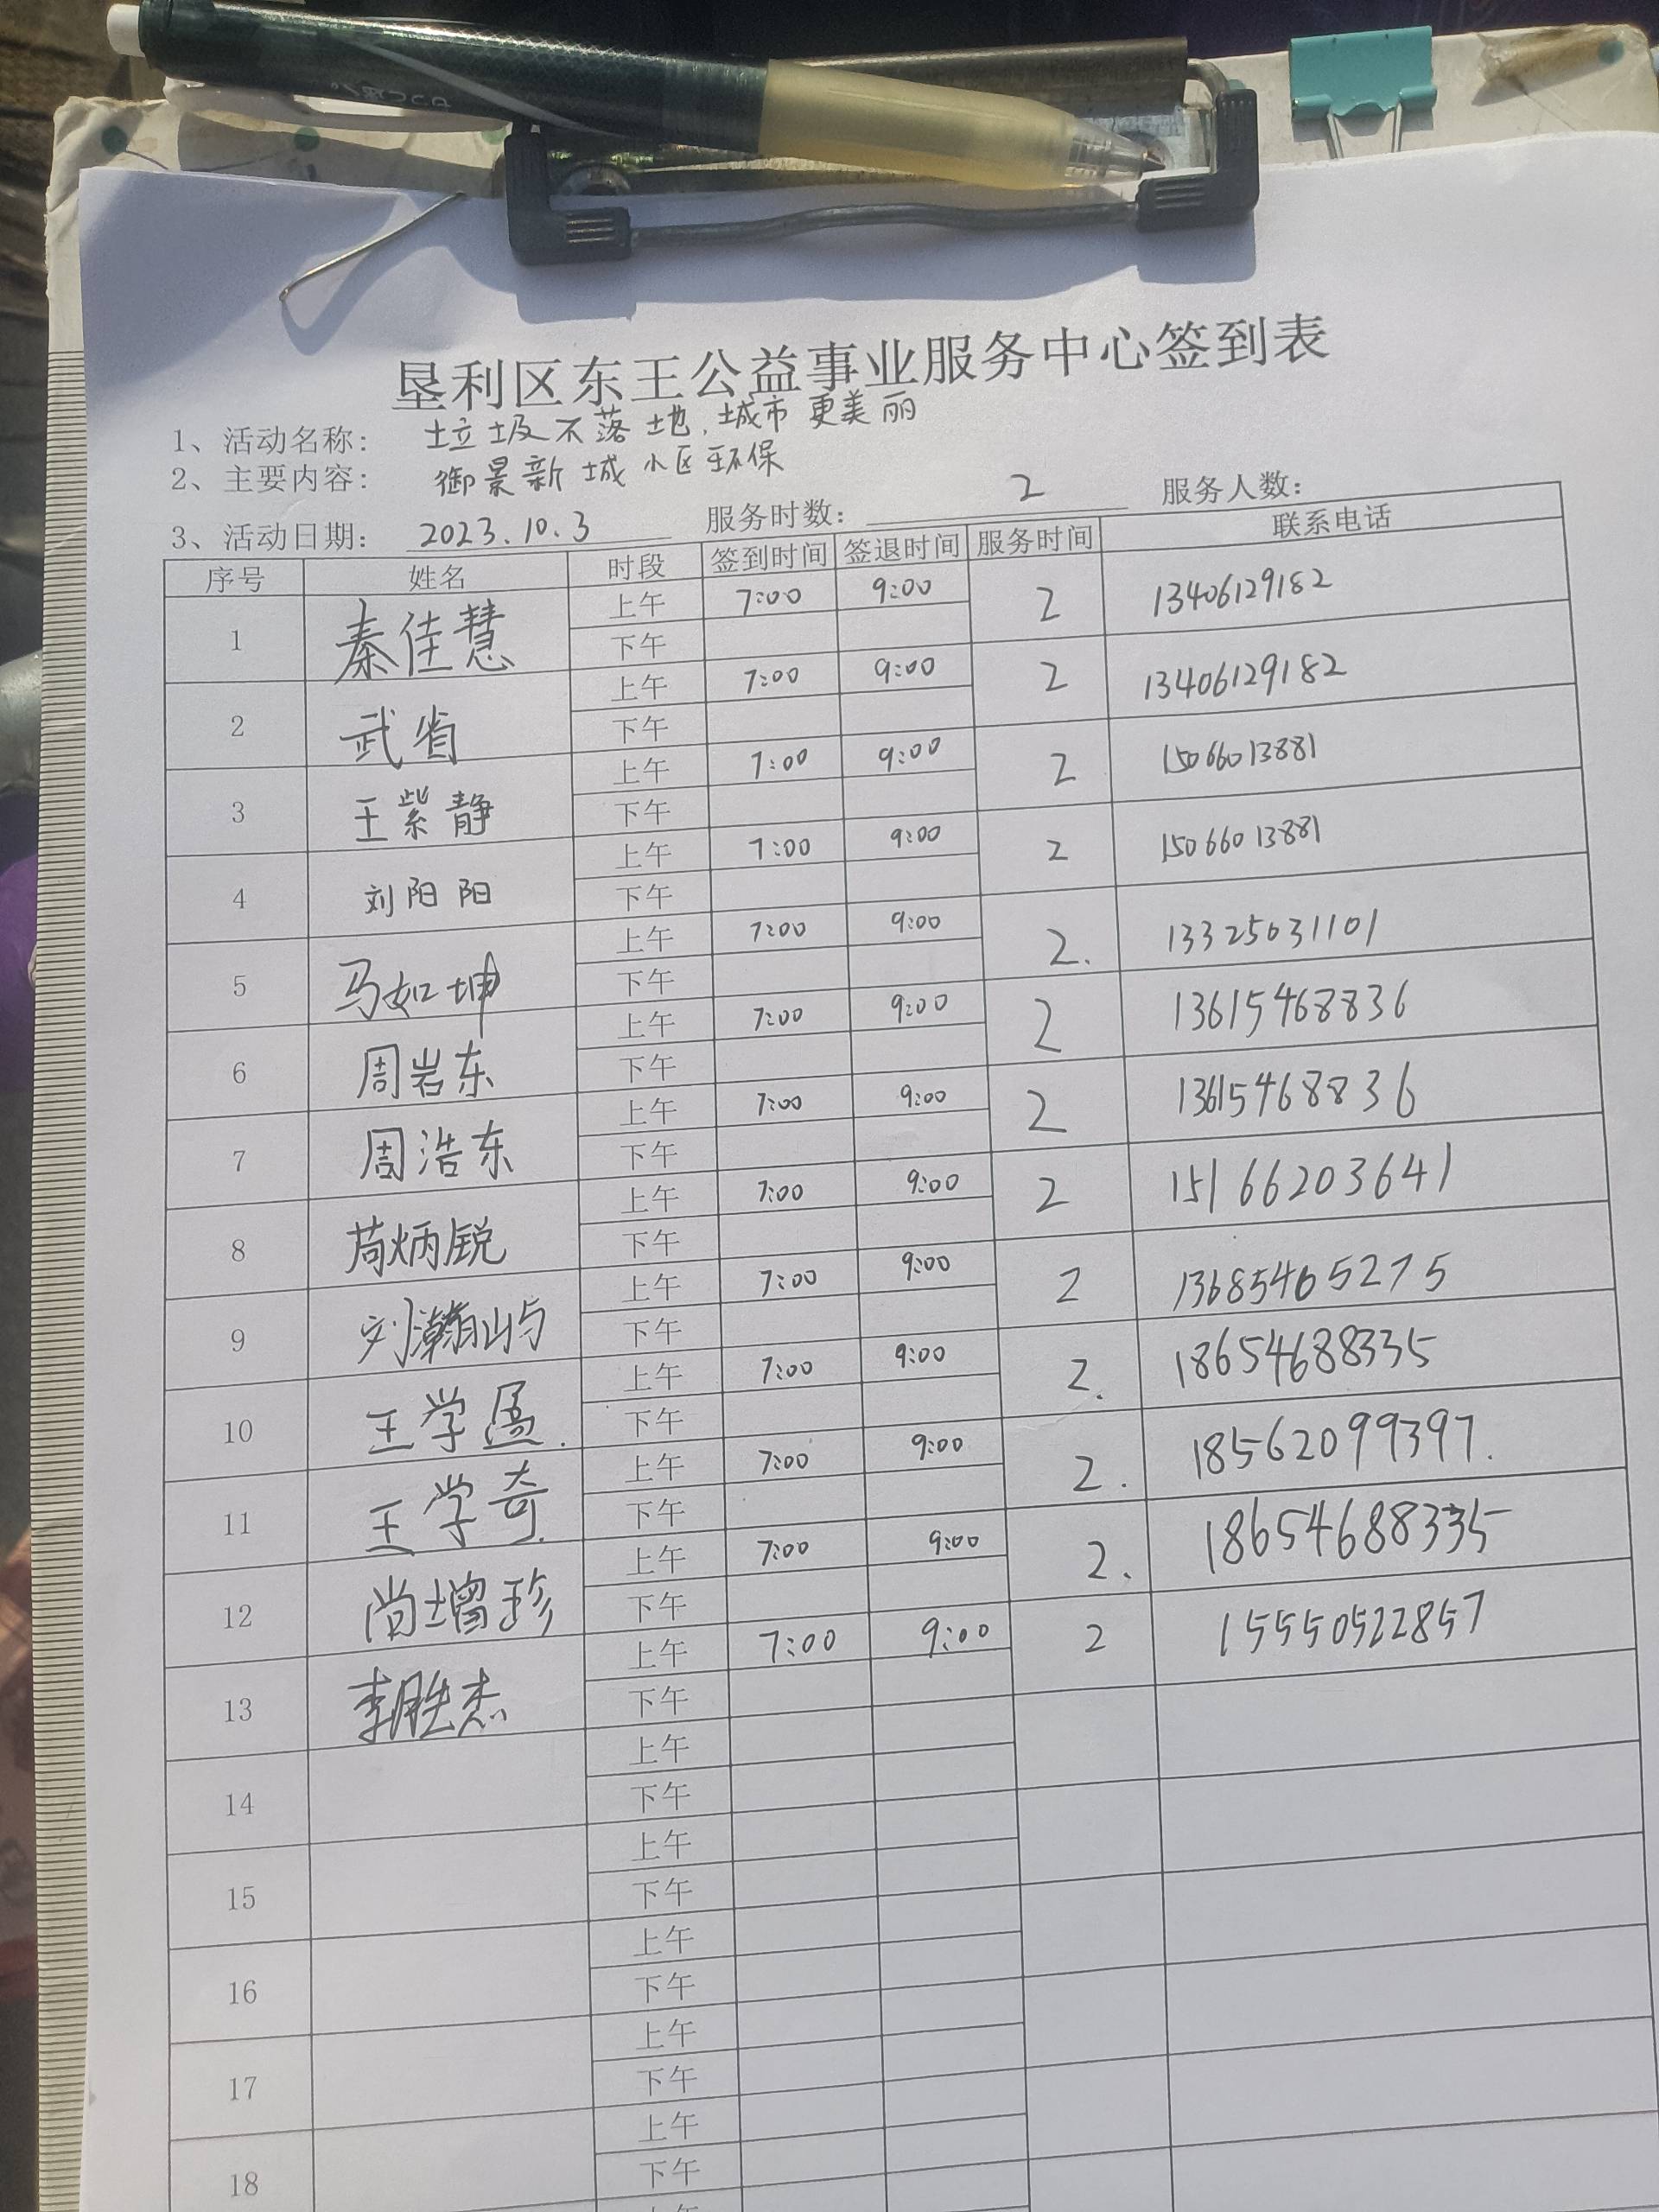 垦利区东王公益事业服务中心签到表
1、活动名称： 垃圾不落地，城市更美丽
2、主要内容： 御景新城小区环保
3、活动日期： 2023.10.3 服务时数： 2 服务人数：
序号 姓名 时段 签到时间 签退时间 服务时间 联系电话
1 秦佳慧 上午 7:00 9:00 2 13406129182
下午
2 武省 上午 7:00 9:00 2 13406129182
下午
3 王紫静 上午 7:00 9:00 2 15066013881
下午
4 刘阳阳 上午 7:00 9:00 2 15066013881
下午
5 马如坤 上午 7:00 9:00 2. 13325631101
下午
6 周岩东 上午 7:00 9:00 2 13615468836
下午
7 周浩东 上午 7:00 9:00 2 13615468836
下午
8 苘炳锐 上午 7:00 9:00 2 15166203641
下午
9 刘瀚屿 上午 7:00 9:00 2 13685465275
下午
10 王学 上午 7:00 9:00 2. 18654688335
下午
11 王学奇. 上午 7:00 9:00 2. 18562099397.
下午
12 尚增珍 上午 7:00 9:00 2. 18654688335
下午
13 李胜杰 上午 7:00 9:00 2 15550522857
下午
14 上午
下午
15 上午
下午
16 上午
下午
17 上午
下午
18 上午
下午
上午